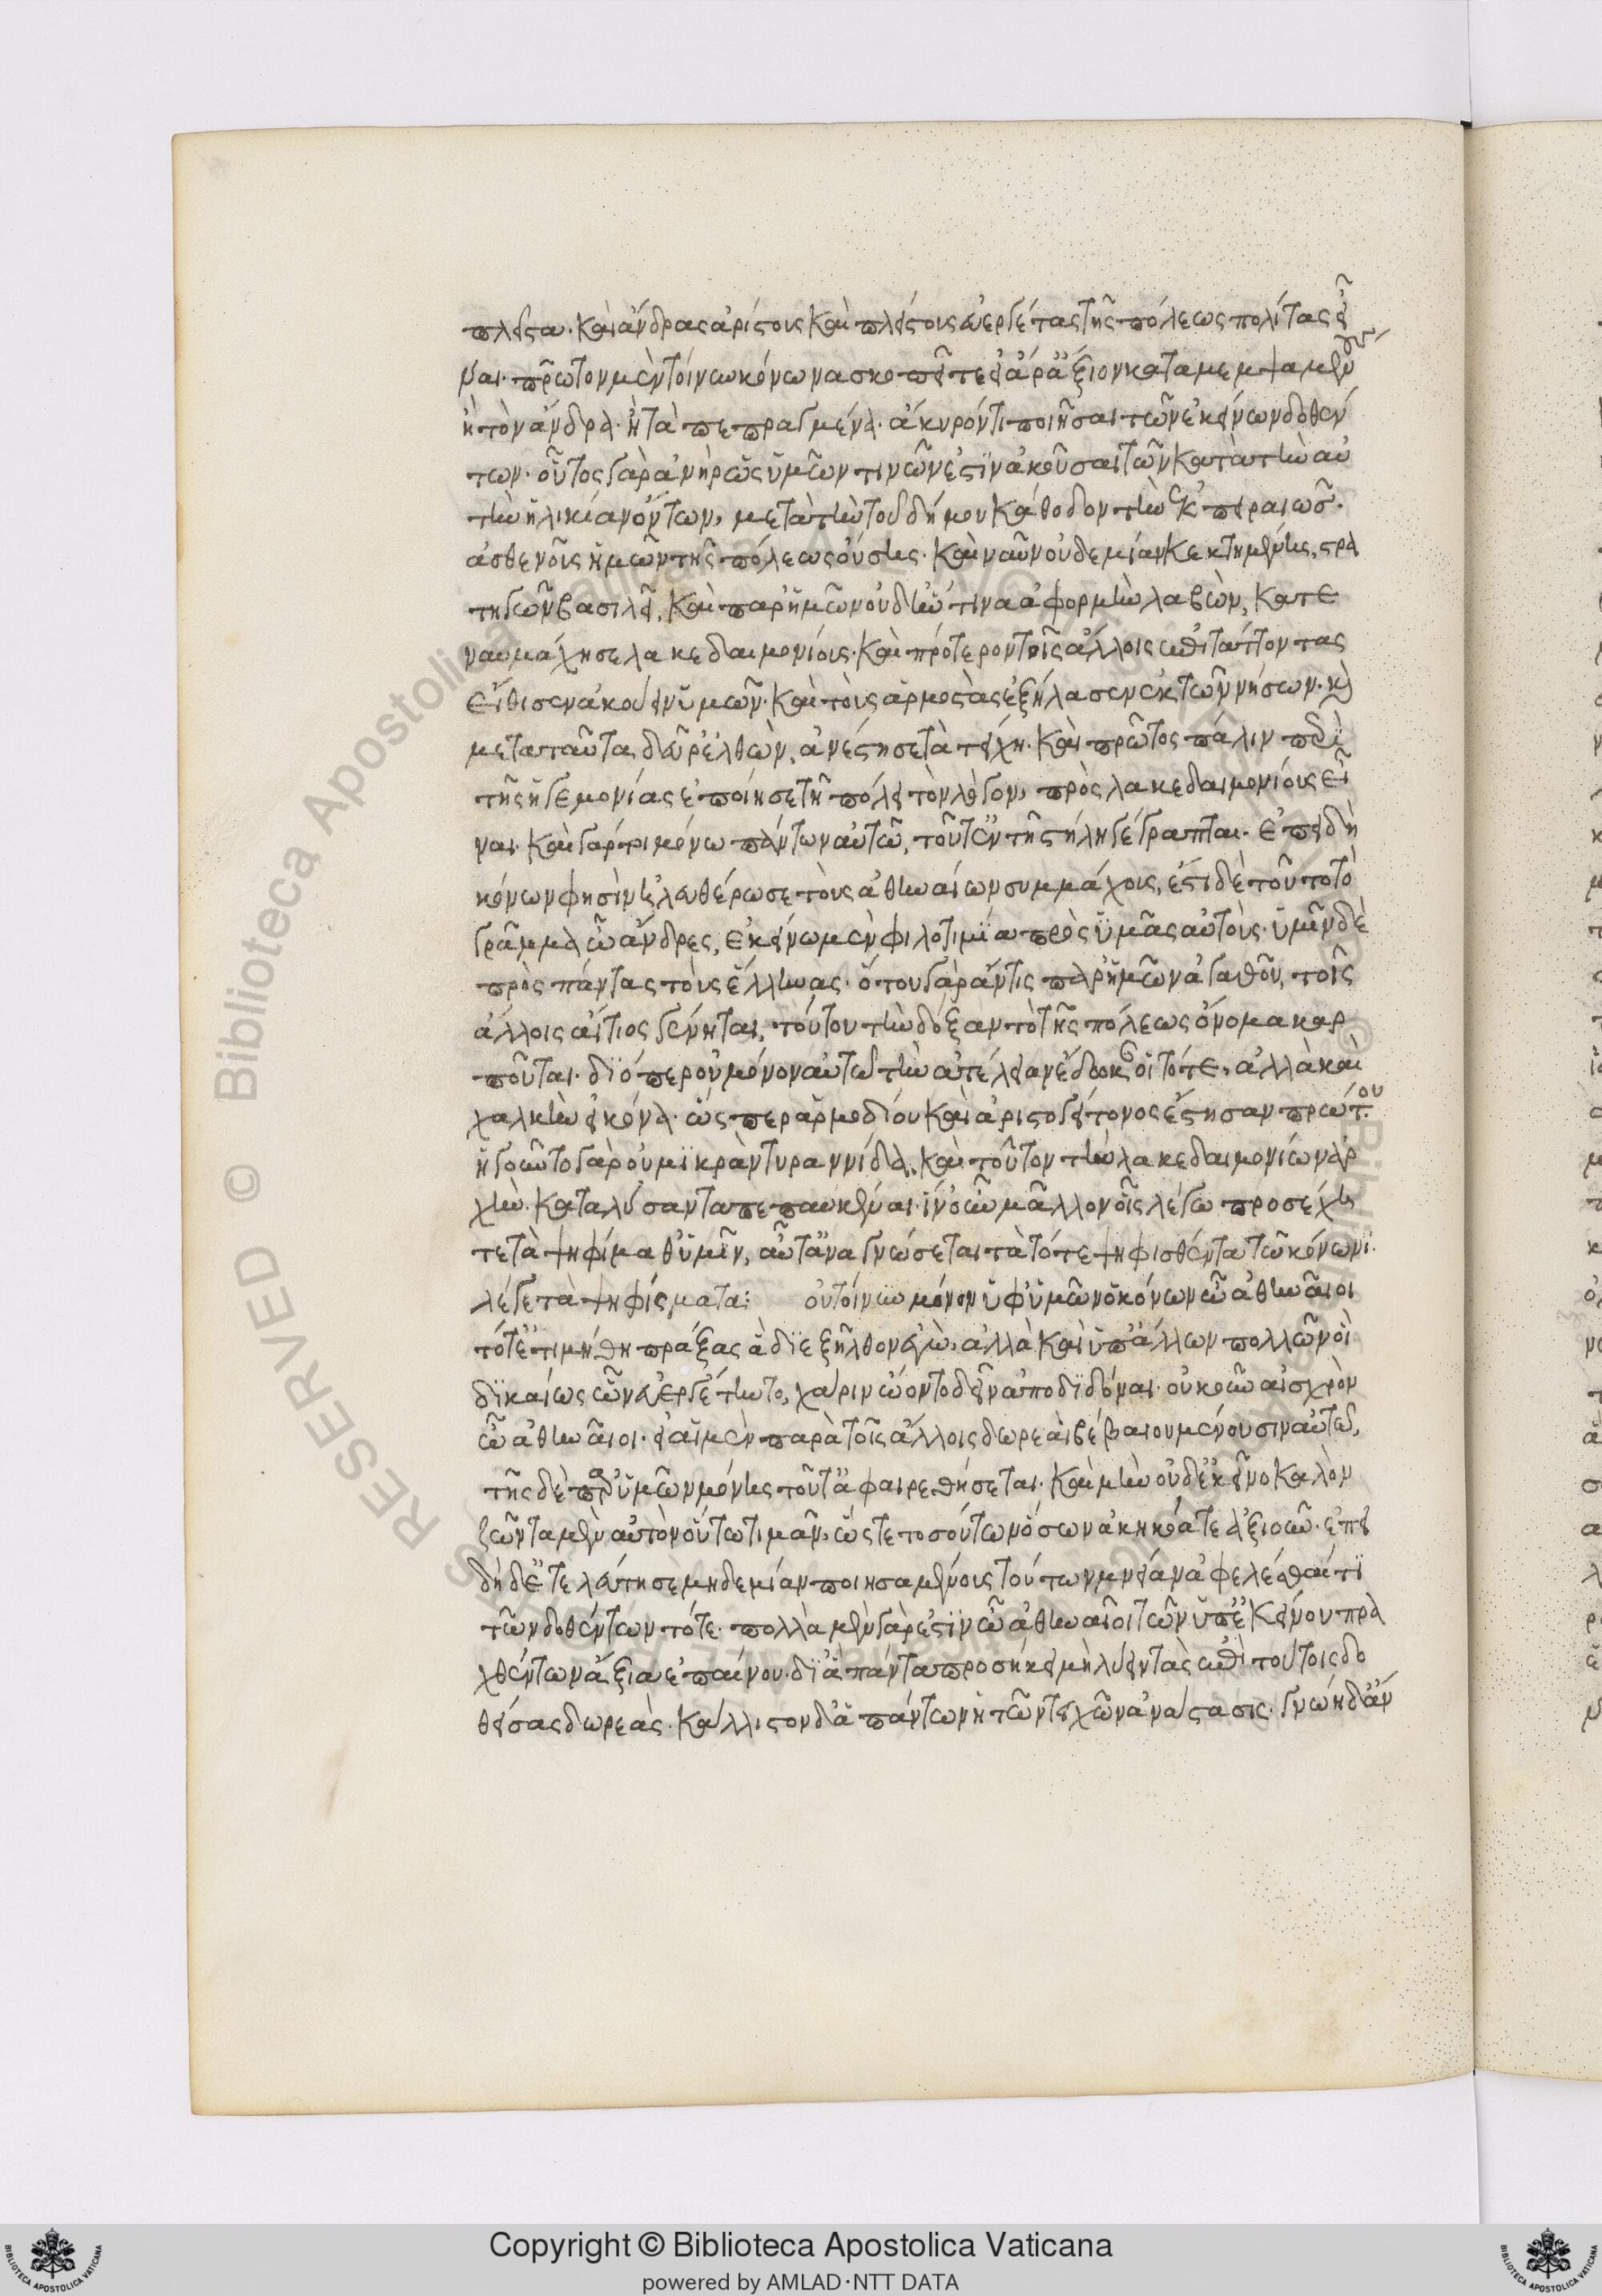 πλεῖστα· καὶ ἄνδρας ἀρίστους καὶ πλείστους εὐεργέτας τῆς πόλεως πολίτας εἶ
ναι. πρῶτον μὲν τοίνυν κόνωνα σκοπεῖτε εἰ ἄρ' ἄξιον καταμεμψαμένους
ἢ τὸν ἄνδρα· ἢ τὰ πεπραγμένα· ἄκυρόν τι ποιῆσαι τῶν ἐκείνων δοθέν
των· οὗτος γὰρ ἀνὴρ ὡς ὑμῶν τινῶν ἐστὶν ἀκοῦσαι τῶν κατὰ τὴν αὐ
τὴν ἡλικίαν ὄντων, μετὰ τὴν τοῦ δήμου κάθοδον τὴν ἐκ πειραιῶς.
ἀσθενοῦς ἡμῶν τῆς πόλεως οὔσης· καὶ ναῦν οὐδεμίαν κεκτημένης, στρα
τηγῶν βασιλεῖ, καὶ παρ' ἡμῶν οὐδ' ἥν τινα ἀφορμὴν λαβὼν, κατε
ναυμάχησε λακεδαιμονίους· καὶ πρότερον τοῖς ἄλλοις ἐπιτάττοντας
εἴθισεν ἀκούειν ὑμῶν· καὶ τοὺς ἁρμοστὰς ἐξήλασεν ἐκ τῶν νήσων· καὶ
μετὰ ταῦτα δεῦρ' ἐλθὼν, ἀνέστησε τὰ τείχη· καὶ πρῶτος πάλιν περὶ
τῆς ἡγεμονίας ἐποίησε τῇ πόλει τὸν λόγον, πρὸς λακεδαιμονίους εἶ
ναι· καὶ γάρ τοι μόνω πάντων αὐτῶ, τοῦτ' ἐν τῆ στήλη γέγραπται· ἐπειδὴ
κόνων φησὶν ἠλευθέρωσε τοὺς ἀθηναίων συμμάχους, ἔστι δὲ τοῦτο τὸ
γράμμα ὦ ἄνδρες, ἐκείνω μὲν φιλοτιμία πρὸς ὑμᾶς αὐτοὺς· ὑμῖν δὲ
πρὸς πάντας τοὺς ἕλληνας· ὅτου γὰρ ἄν τις παρ' ἡμῶν ἀγαθοῦ, τοῖς
ἄλλοις αἴτιος γένηται, τούτου τὴν δόξαν τὸ τῆς πόλεως ὄνομα καρ
ποῦται· διόπερ οὐ μόνον αὐτῶ τὴν ἀτέλειαν ἔδωκαν οἱ τότε, ἀλλὰ καὶ
χαλκὴν εἰκόνα· ὥσπερ ἁρμοδίου καὶ ἀριστογείτονος ἔστησαν πρώτου
ἡγοῦντο γὰρ οὐ μικρὰν τυραννίδα, καὶ τοῦτον τὴν λακεδαιμονίων ἀρ
χὴν καταλύσαντα πεπαυκέναι· ἵν' οὖν μᾶλλον οἷς λέγω προσέχη
τε τὰ ψηφίσμαθ' ὑμῖν, αὐτὰ ἀναγνώσεται τὰ τότε ψηφισθέντα τῶ κόνωνι.
λέγε τὰ ψηφίσματα: οὐ τοίνυν μόνον ὑφ' ὑμῶν ὁ κόνων ὦ ἀθηναῖοι
τότ' ἐτιμήθη πράξας ἃ διεξῆλθον ἐγὼ, ἀλλὰ καὶ ὑπ' ἄλλων πολλῶν οἳ
δικαίως ὧν εὐεργέτηντο, χάριν ὤοντο δεῖν ἀποδιδόναι· οὐκοῦν αἰσχρὸν
ὦ ἀθηναῖοι· εἰ αἱ μὲν παρὰ τοῖς ἄλλοις δωρεαὶ βέβαιοι μένουσιν αὐτῶ,
τῆς δὲ παρ' ὑμῶν μόνης τοῦτ' ἀφαιρεθήσεται· καὶ μὴν οὐδ' ἐκεῖνο καλὸν
ζῶντα μὲν αὐτὸν οὕτω τιμᾶν, ὥστε τοσούτων ὅσων ἀκηκόατε ἀξιοῦν· ἐπει
δὴ δ' ἐτελεύτησε μηδεμίαν ποιησαμένους τούτων μνείαν ἀφελέσθαι τι
τῶν δοθέντων τότε· πολλὰ μὲν γάρ ἐστιν ὦ ἀθηναῖοι τῶν ὑπ' ἐκείνου πρα
χθέντων ἄξια ἐπαίνου· δι' ἃ πάντα προσήκει μὴ λύειν τὰς ἐπὶ τούτοις δο
θείσας δωρεὰς· κάλλιστον δ' ἁπάντων ἡ τῶν τειχῶν ἀνάστασις· γνοίη δ' ἄν
Copyright © Biblioteca Apostolica Vaticana
powered by AMLAD·NTT DATA